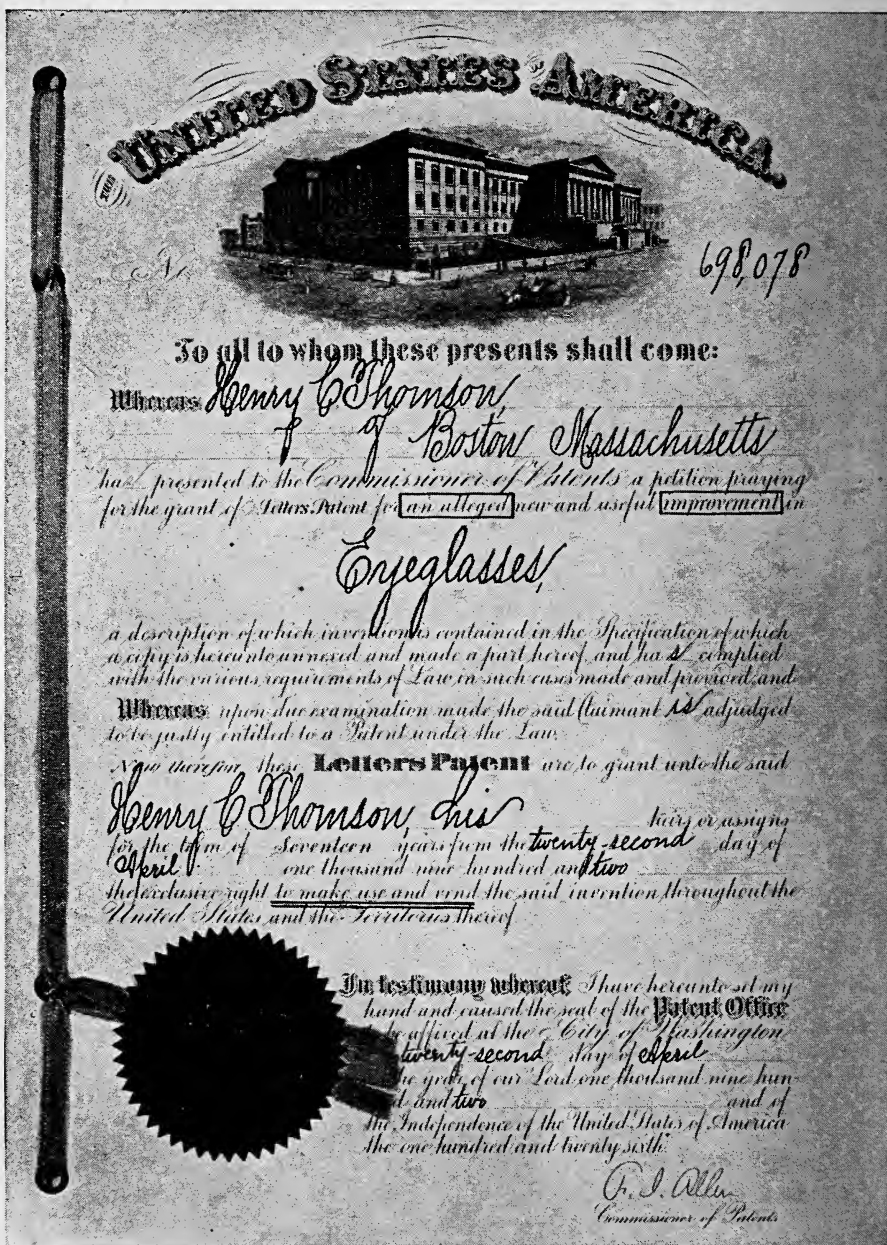 THE UNITED STATES OF AMERICA.
No
698,078
To all to whom these presents shall come:
Whereas Henry C Thomson,
of Boston Massachusetts
has presented to the Commissioner of Patents a petition praying
for the grant of Letters Patent for an alleged new and useful improvement in
Eyeglasses,
a description of which invention is contained in the Specification of which
a copy is hereunto annexed and made a part hereof, and has complied
with the various requirements of Law in such cases made and provided, and
Whereas upon due examination made the said Claimant is adjudged
to be justly entitled to a Patent under the Law.
Now therefore these Letters Patent are to grant unto the said
Henry C Thomson, his heirs or assigns
for the term of Seventeen years from the twenty-second day of
April one thousand nine hundred and two
the exclusive right to make use and vend the said invention throughout the
United States and the Territories thereof
In testimony whereof I have hereunto set my
hand and caused the seal of the Patent Office
to be affixed at the City of Washington
twenty-second day of April
the year of our Lord one thousand nine hun-
d and two and of
the Independence of the United States of America
the one hundred and twenty sixth.
F. I. Allen
Commissioner of Patents